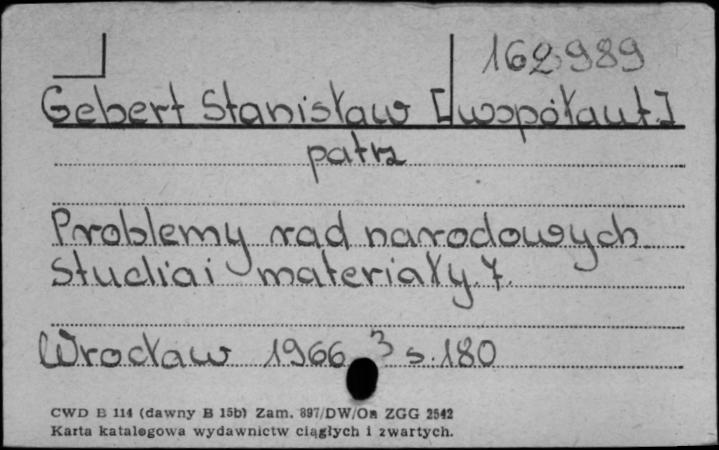 162989
Gebert Stanisław [współaut.]
patrz
Problemy rad narodowych.
Studia i materiały. 7.
Wrocław 1966 3 s. 180
CWD B 114 (dawny B 15b) Zam. 897/DW/Oa ZGG 2542
Karta katalogowa wydawnictw ciągłych i zwartych.